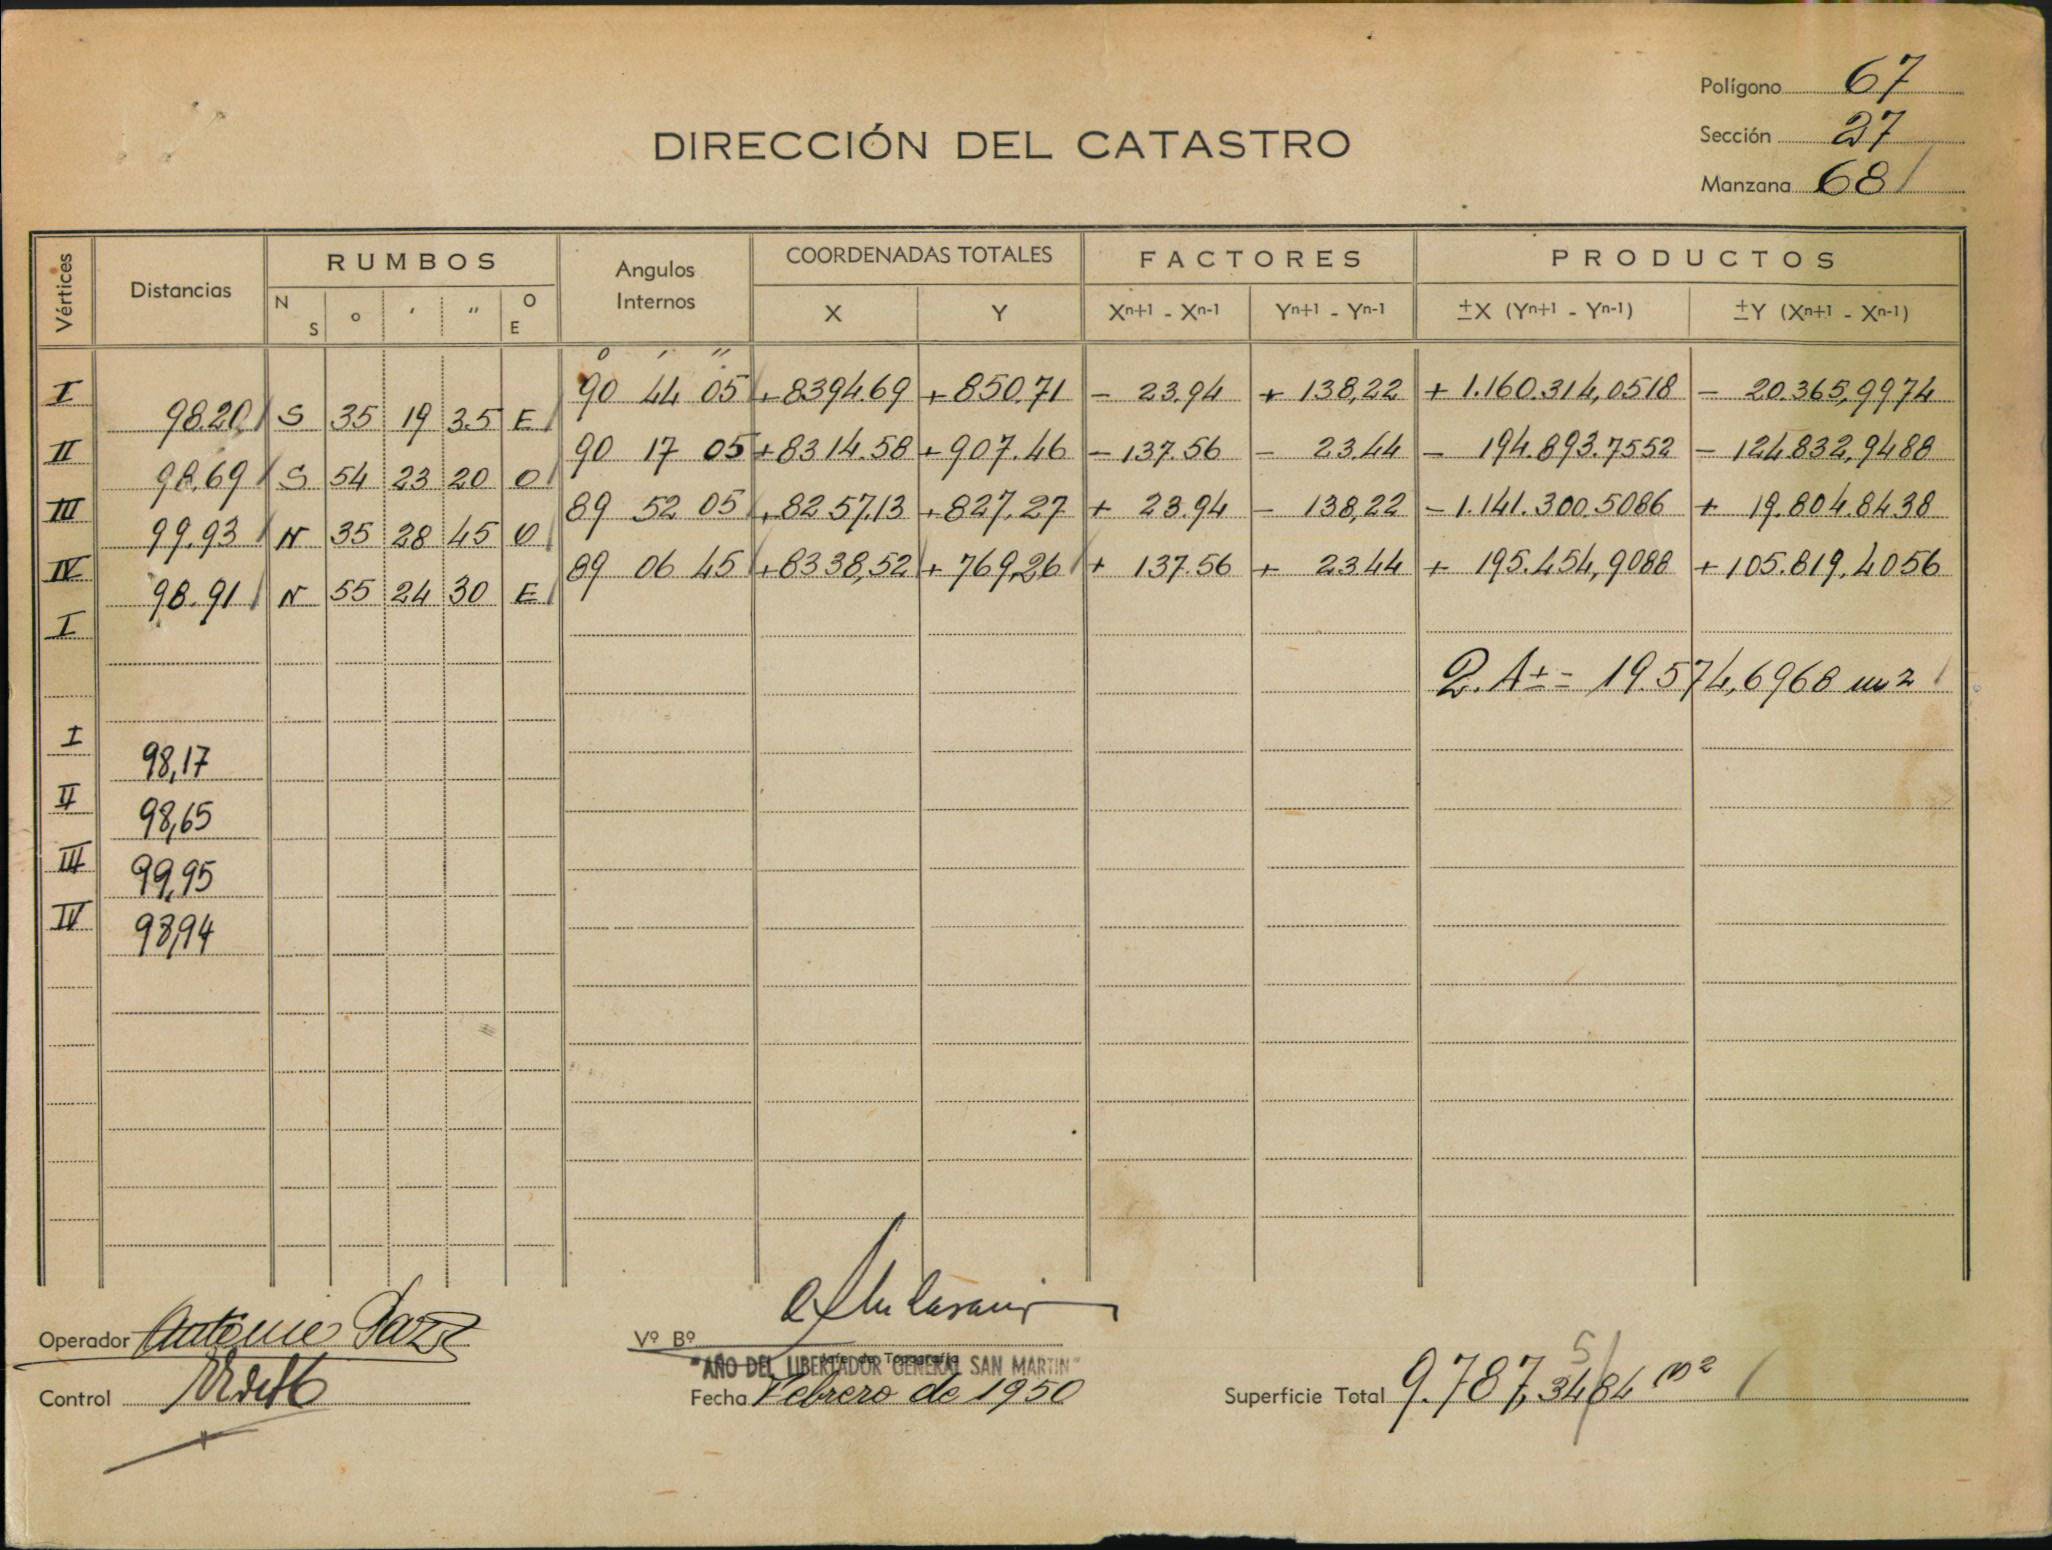 Polígono 67
DIRECCIÓN DEL CATASTRO
Sección 27
Manzana 68
Vértices Distancias RUMBOS Angulos Internos COORDENADAS TOTALES FACTORES PRODUCTOS
N S o ′ ″ O E X Y Xⁿ⁺¹ - Xⁿ⁻¹ Yⁿ⁺¹ - Yⁿ⁻¹ ±X (Yⁿ⁺¹ - Yⁿ⁻¹) ±Y (Xⁿ⁺¹ - Xⁿ⁻¹)
o ′ ″
I 90 44 05 +8394.69 +850.71 - 23.94 + 138,22 + 1.160.314,0518 - 20.365,9974
98.20 S 35 19 35 E
II 90 17 05 +8314.58 +907.46 -137.56 - 23.44 - 194.893.7552 -124.832,9488
98.69 S 54 23 20 O
III 89 52 05 +8257,13 +827,27 + 23.94 - 138,22 -1.141.300.5086 + 19.804.8438
99.93 N 35 28 45 O
IV 89 06 45 +8338,52 +769,26 + 137.56 + 23.44 + 195.454,9088 +105.819,4056
98.91 N 55 24 30 E
I
2.A ± = 19.574,6968 m2
I 98,17
II 98,65
III 99,95
IV 98,94
Operador Antonio
Vº Bº
Jefe de Topografía
"AÑO DEL LIBERTADOR GENERAL SAN MARTIN"
Control
Fecha Febrero de 1950
5
Superficie Total 9.787,3484 m²